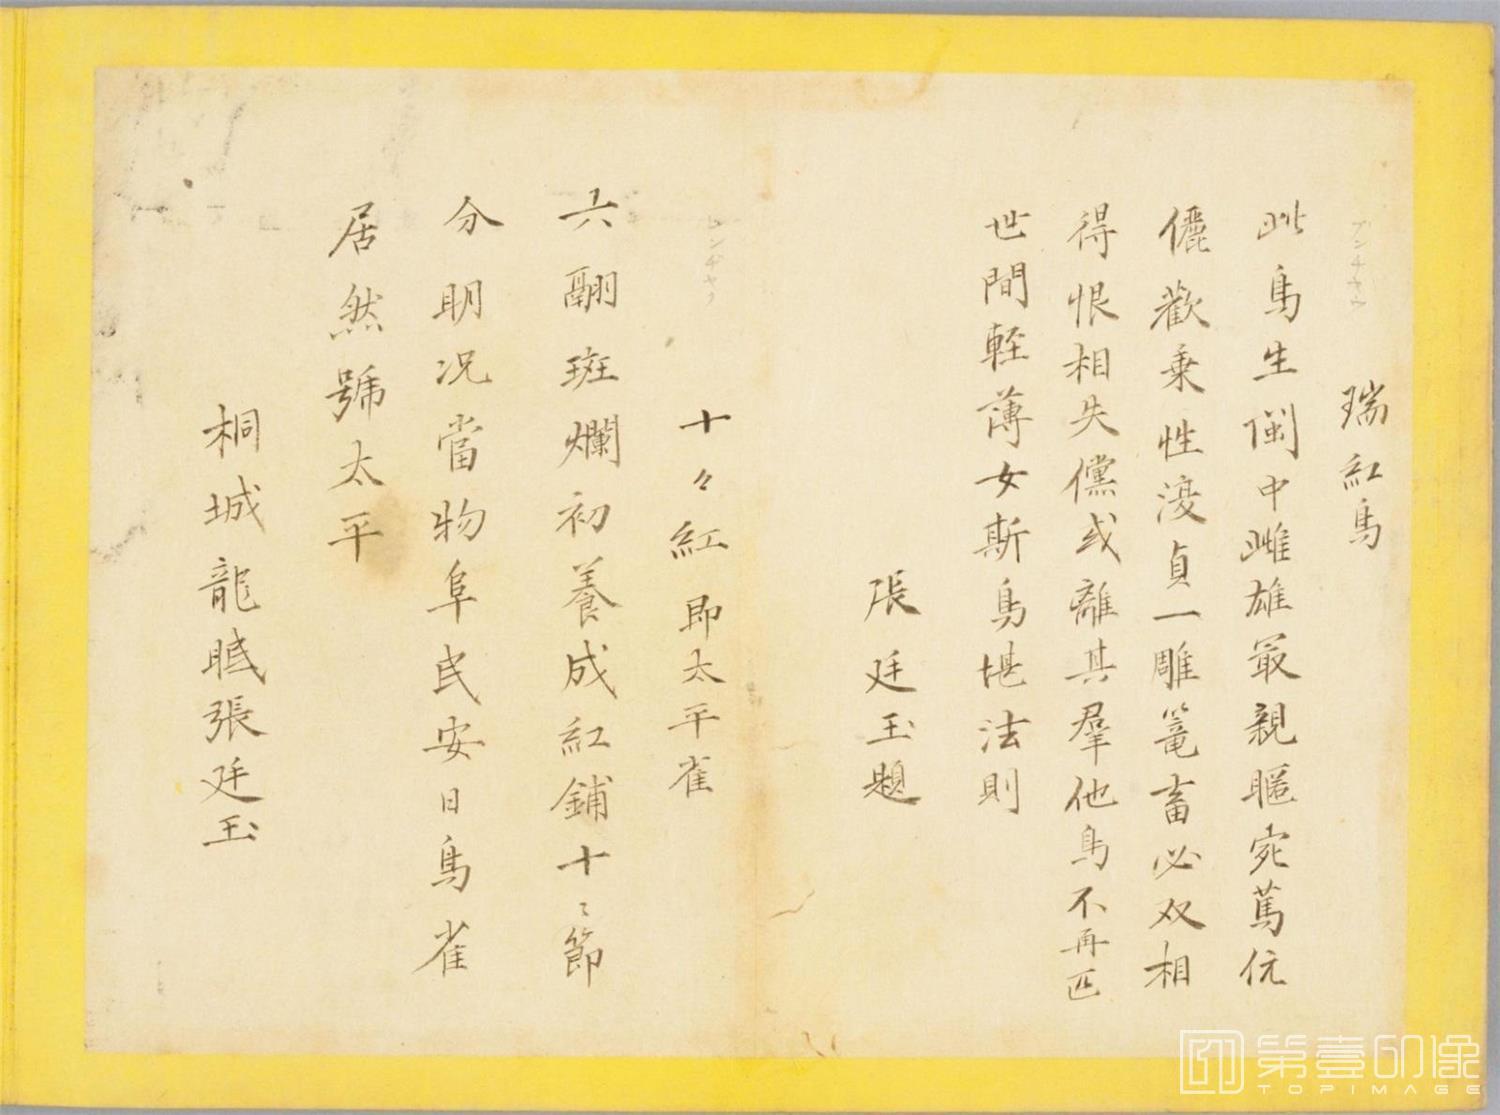 瑞紅鳥
此鳥生閩中雌雄最親暱宛萬伉
儷歡乗性復貞一雕篭畜必双相
得恨相失儻或離其羣他鳥不再匹
世間軽薄女斯鳥堪法則
張廷玉題
十々紅即太平雀
六翮斑斕初養成紅鋪十〻節
分明况當物阜民安日鳥雀
居然號太平
桐城龍眠張廷玉
第壹印像
TOPIMAGE